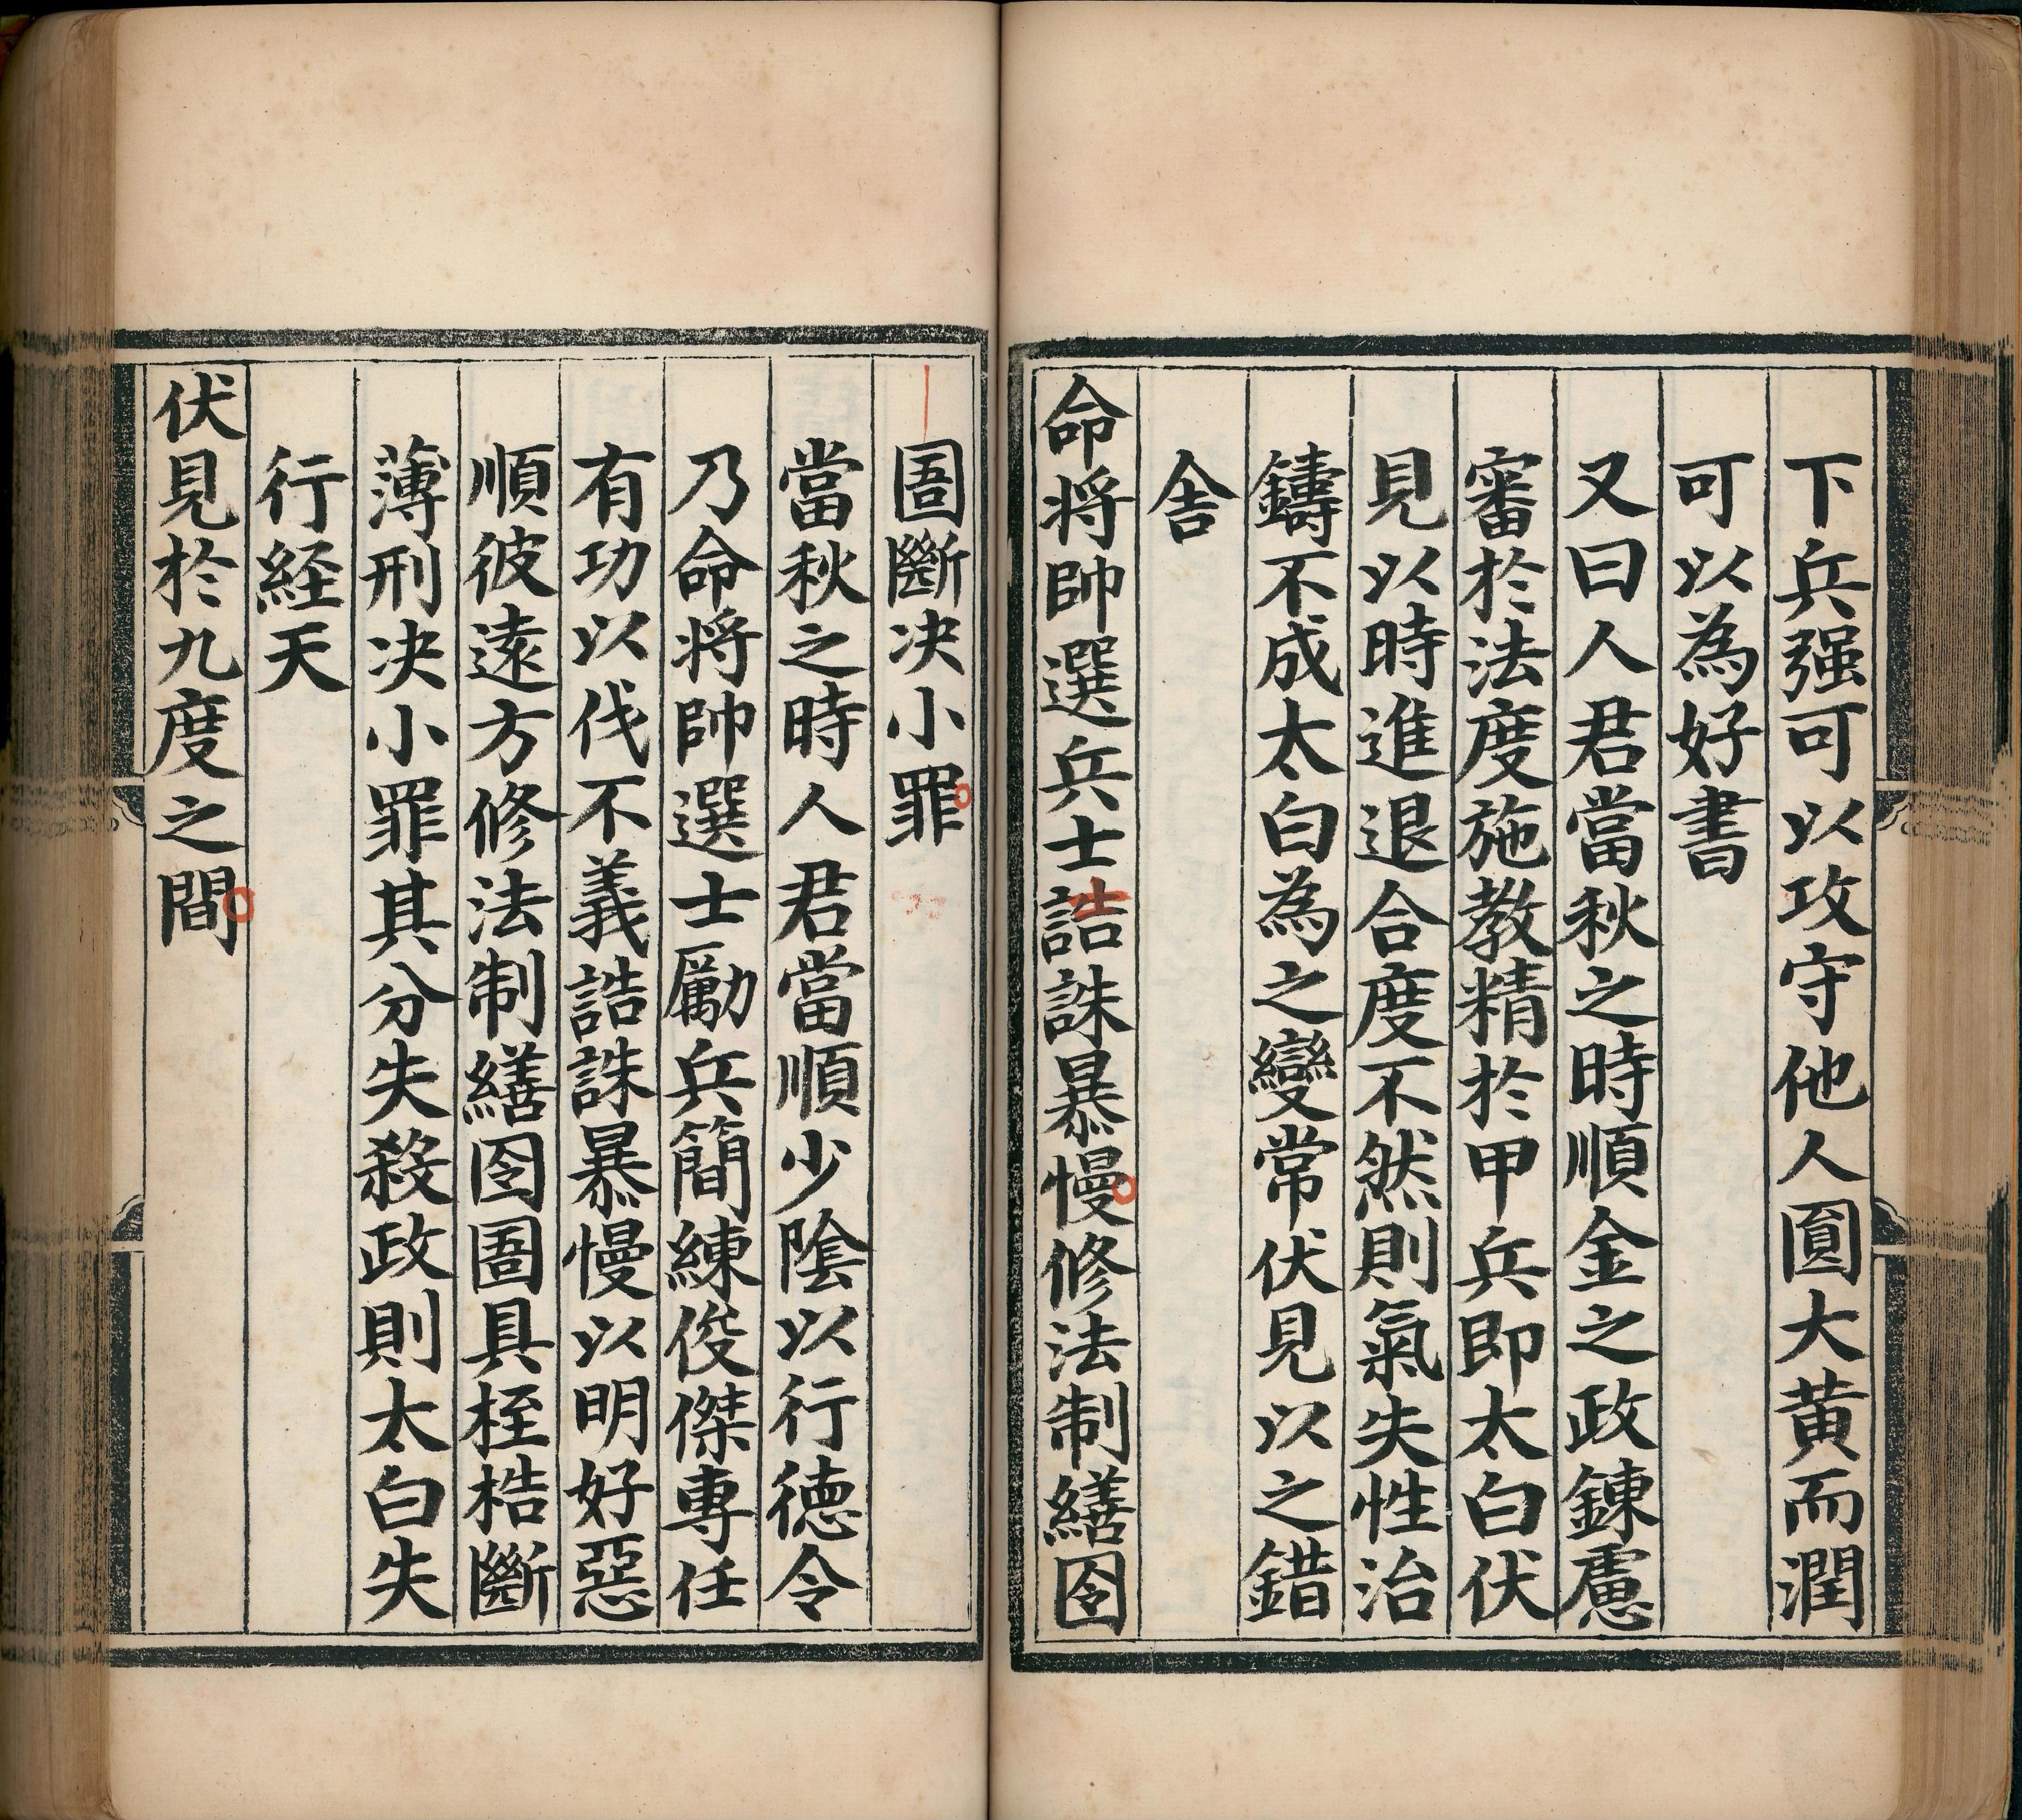 下兵强可以攻守他人圓大黄而潤
可以為好書
又曰人君當秋之時順金之政錬慮
審於法度施教精於甲兵即太白伏
見以時進退合度不然則氣失性治
鑄不成太白為之變常伏見以之錯
舍
命将帥選兵士詰誅暴慢修法制繕囹
圄斷决小罪
當秋之時人君當順少陰以行德令
乃命将帥選士勵兵簡練俊傑專任
有功以伐不義詰誅暴慢以明好惡
順彼遠方修法制繕囹圄具桎梏斷
薄刑决小罪其分失殺政則太白失
行経天
伏見於九度之間